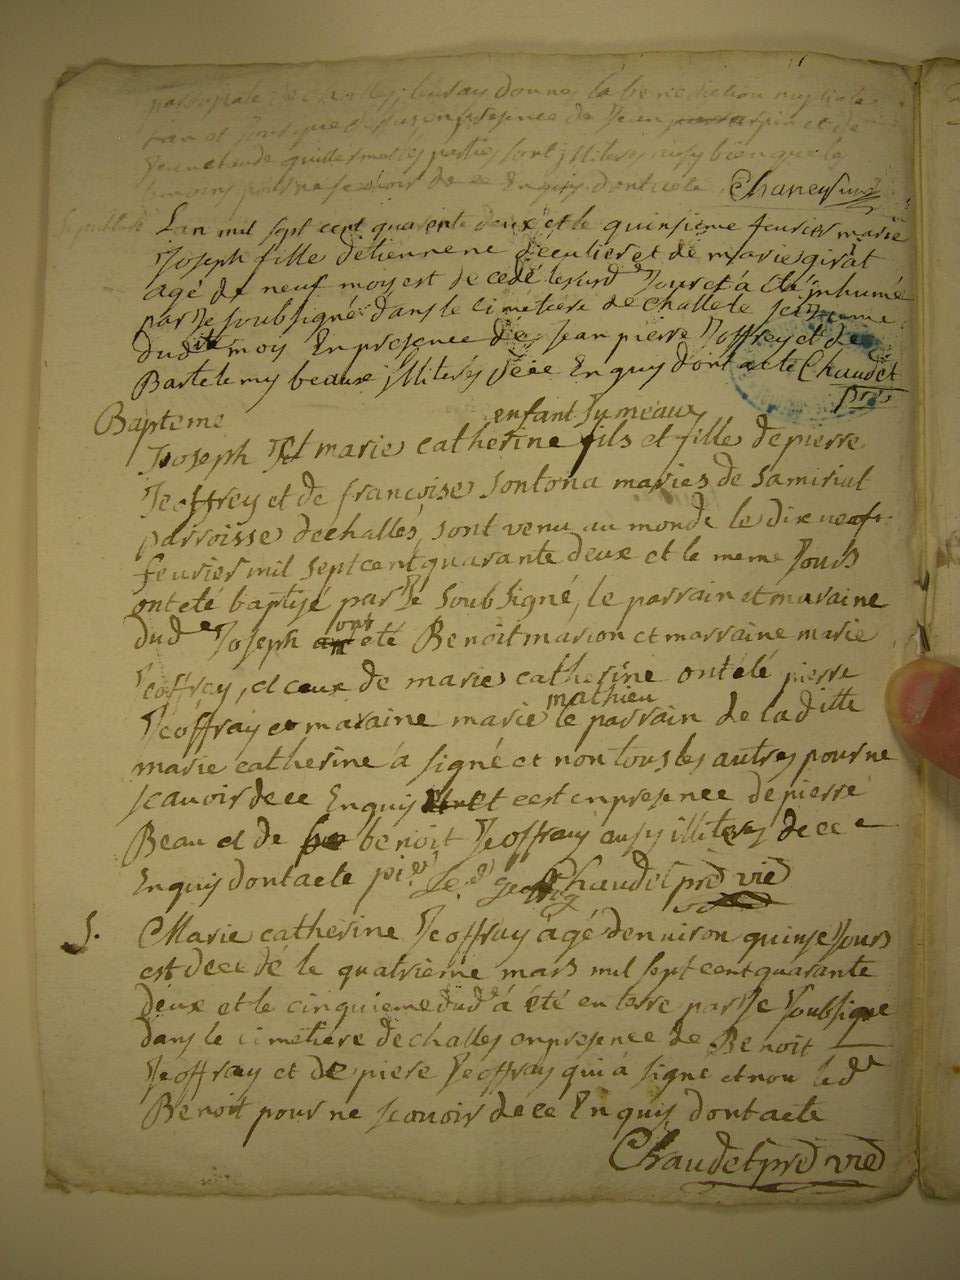 paroissiale de challes, leur ay donné la benediction nuptiale
en presence de Jean et de
Jean claude les parties sont illiteres aussy bien que les
temoins pour ne sçavoir de ce Enquis dont acte Chaney
Sepulture Lan mil sept cent quarente deux et le quinsieme feurier marie
Joseph fille detienne et de marie girat
agé de neuf moys est decedé lesusd Jour et á eté inhumé
par Je soubsigné dans le cimetiere de challe le
dudit mois En presence de Jean pierre Joffrey et de
Bartelemy beaux illiteres Enquy dont acte Chaudet
ptre
Bapteme
enfant Jumeaux
Joseph Et marie catherine fils et fille de pierre
Jeoffrey et de françoise Sontona maries de Samiriat
parroisse de challes, sont venu au monde le dixneuf
feurier mil sept cent quarante deux et le meme Jours
ont eté baptisé par Je Soubsigné, le parrain et maraine
dud Joseph ont été Benoit marion et marraine marie
Jeoffray, et ceux de marie catherine ont eté pierre
mathieu
Jeoffray et maraine marie le parrain de laditte
marie catherine á signé et non tous les autres pour ne
scauoir de ce Enquis et cest en presence de pierre
Beau et de benoit Jeoffray aussy illiteres de ce
Enquis dont acte Chaudet pre vic
5. Marie catherine Jeoffray ágé denuiron quinse Jours
est decedé le quatrieme mars mil sept cent quarante
deux et le cinquieme dud á été en terre par Je soubsigne
dans le cimetiere de challes en presence de Benoit
Jeoffray et de piere Jeoffray qui á signé et non led
Benoit pour ne scauoir de ce Enquis dont acte
Chaudet pre vic